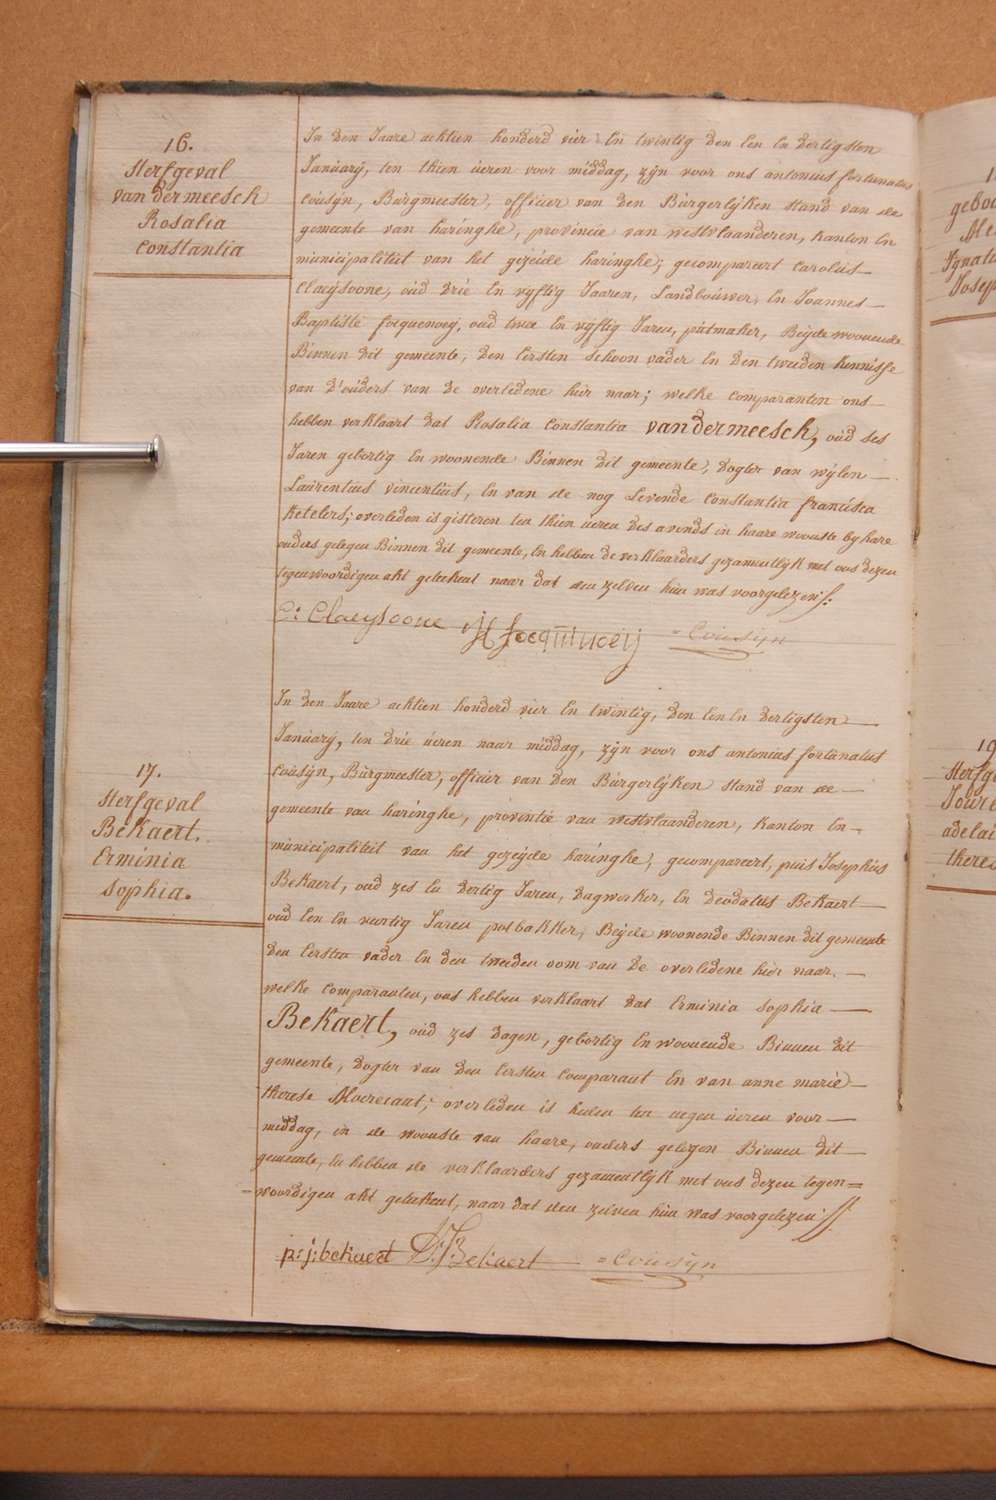 16.
Sterfgeval
van dermeesch
Rosalia
Constantia
In den Jaare achtien honderd vier En twintig den Een En dertigsten
January, ten thien ueren voor middag, zijn voor ons antonius fortunatus
Cousijn, Burgmeester, officier van den Burgerlijken stand van de
gemeente van haringhe, provincie van westvlaanderen, kanton En
municipaliteit van het gezeide haringhe; gecompareert Carolus
Claeijsoone, oud drie En vijftig Jaaren, Landbouwer, En Joannes
Baptiste focquenoeij, oud twee En vijftig Jaren, putmaker, Beijde woonende
Binnen dit gemeente, den Eersten schoon vader En den tweeden kennisse
van d'ouders van de overledene hier naar; welke comparanten ons
hebben verklaart dat Rosalia Constantia vandermeesch, oud ses
Jaren gebortig En woonende Binnen dit gemeente, dogter van wijlen
Laurentius vincentius, En van de nog Levende Constantia francisca
ketelers; overleden is gisteren ten thien ueren des avonds in haare wooste by hare
ouders gelegen Binnen dit gemeente, En hebben de verklaarders gezamentlijk met ons dezen
tegenwoordigen akt geteekent naar dat den zelven hun was voorgelezen
C: Claeysoone focquenoeij Cousijn
17.
Sterfgeval
Bekaert.
Erminia
Sophia.
In den Jaare achtien honderd vier En twintig, den Een En dertigsten
January, ten drie ueren naar middag, zijn voor ons antonius fortunatus
Cousijn, Burgmeester, officier van den Burgerlijken stand van de
gemeente van haringhe, provintie van westvlaanderen, kanton En
municipaliteit van het gezeijde haringhe, gecompareert, puis Josephus
Bekaert, oud zes En dertig Jaren, dagwerker, En deodatus Bekaert
oud Een En veertig Jaren potbakker, Beijde woonende Binnen dit gemeente
den Eersten vader En den tweeden oom van de overledene hier naar.
welke comparanten, ons hebben verklaart dat Erminia Sophia
Bekaert, oud zes dagen, gebortig En woonende Binnen dit
gemeente, dogter van den Eersten Comparant En van anne marie
therese Moerecaut; overleden is heden ten negen ueren voor
middag, in de wooste van haare, ouders gelegen Binnen dit
gemeente, En hebben de verklaarders gezamentlijk met ons dezen tegen=
=woordigen akt geteekent, naar dat den zelven hun was voorgelezen
p: j: bekaert D: J: Bekaert Cousijn